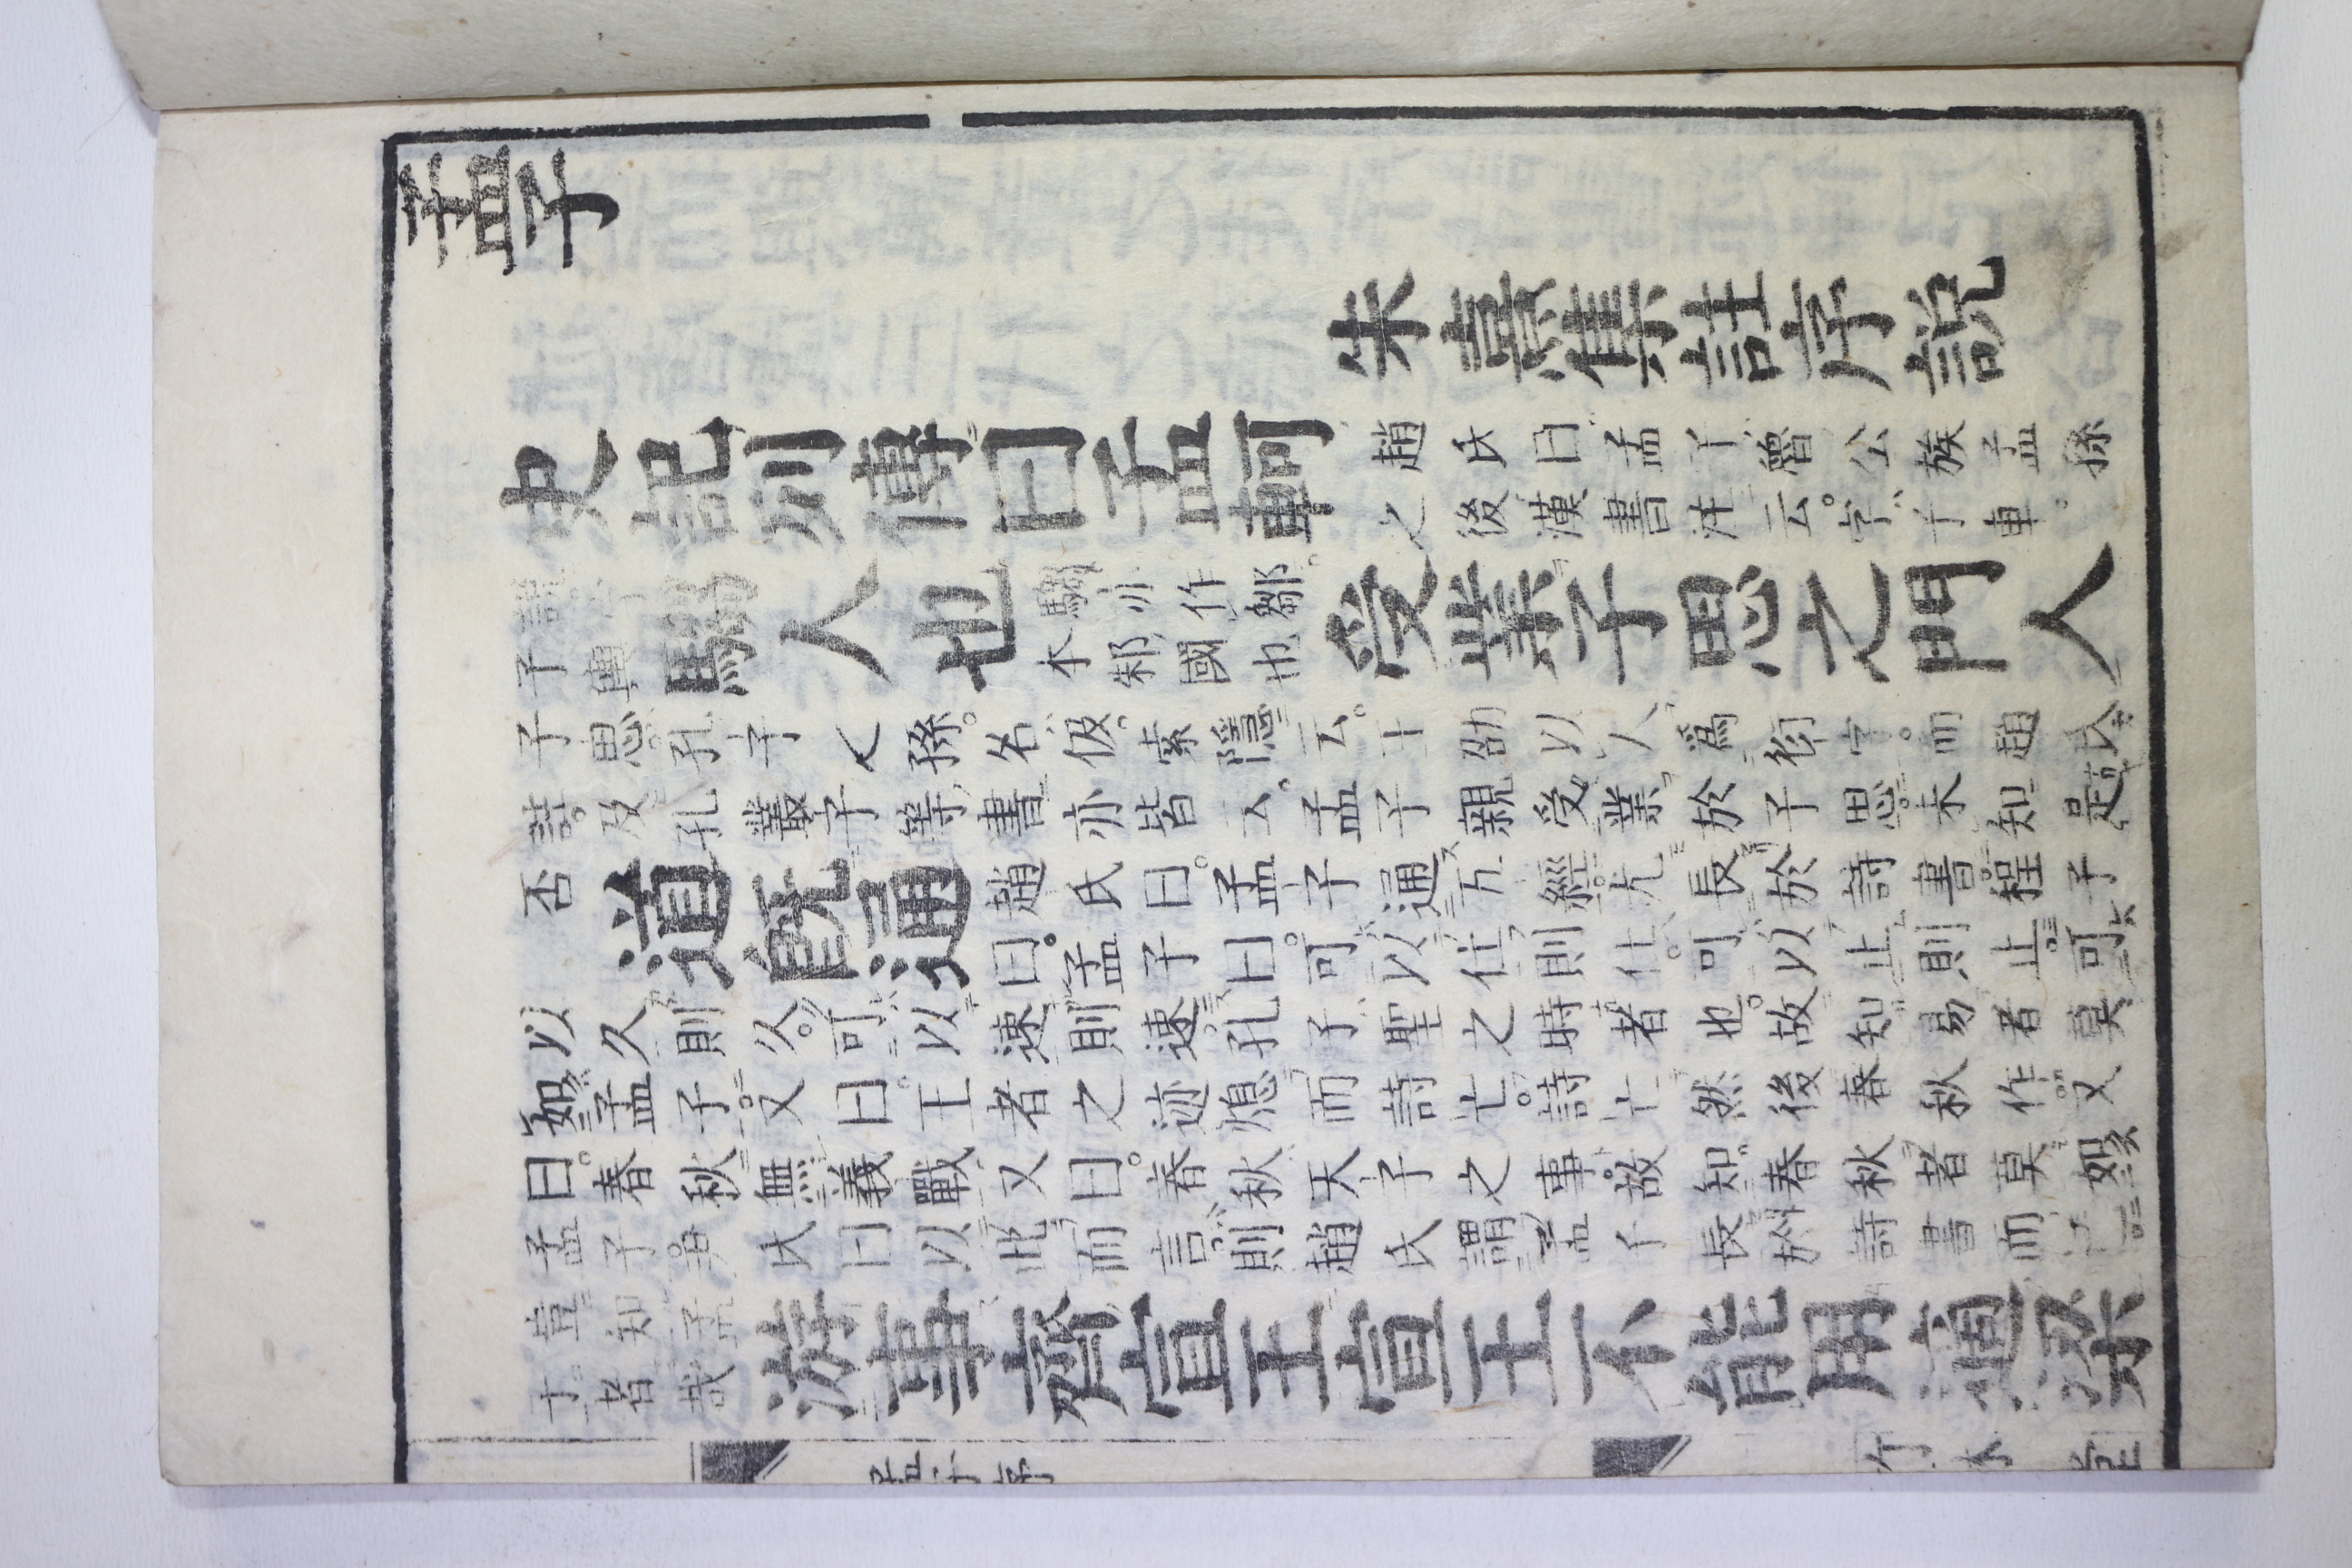 孟子
朱熹集註序説
史記列傳曰孟軻
趙氏曰孟子魯公族孟孫
之後漢書注云字子車
説
子輿
騶人也
騶亦作鄒
本邾國也
受業子思之門人
子思孔子之孫名伋索隱云王劭以人爲衍字而趙氏
註及孔叢子等書亦皆云孟子親受業於子思未知是
否
道既通
趙氏曰孟子通五經尤長於詩書程子
曰孟子曰可以仕則仕可以止則止可
以久則久可以速則速孔子聖之時者也故知易者莫
如孟子又曰王者之迹熄而詩亡詩亡然後春秋作又
曰春秋無義戰又曰春秋天子之事故知春秋者莫如
孟子尹氏曰以此而言則趙氏謂孟子長於詩書而已
豈知孟
子者哉
游事齊宣王宣王不能用適梁